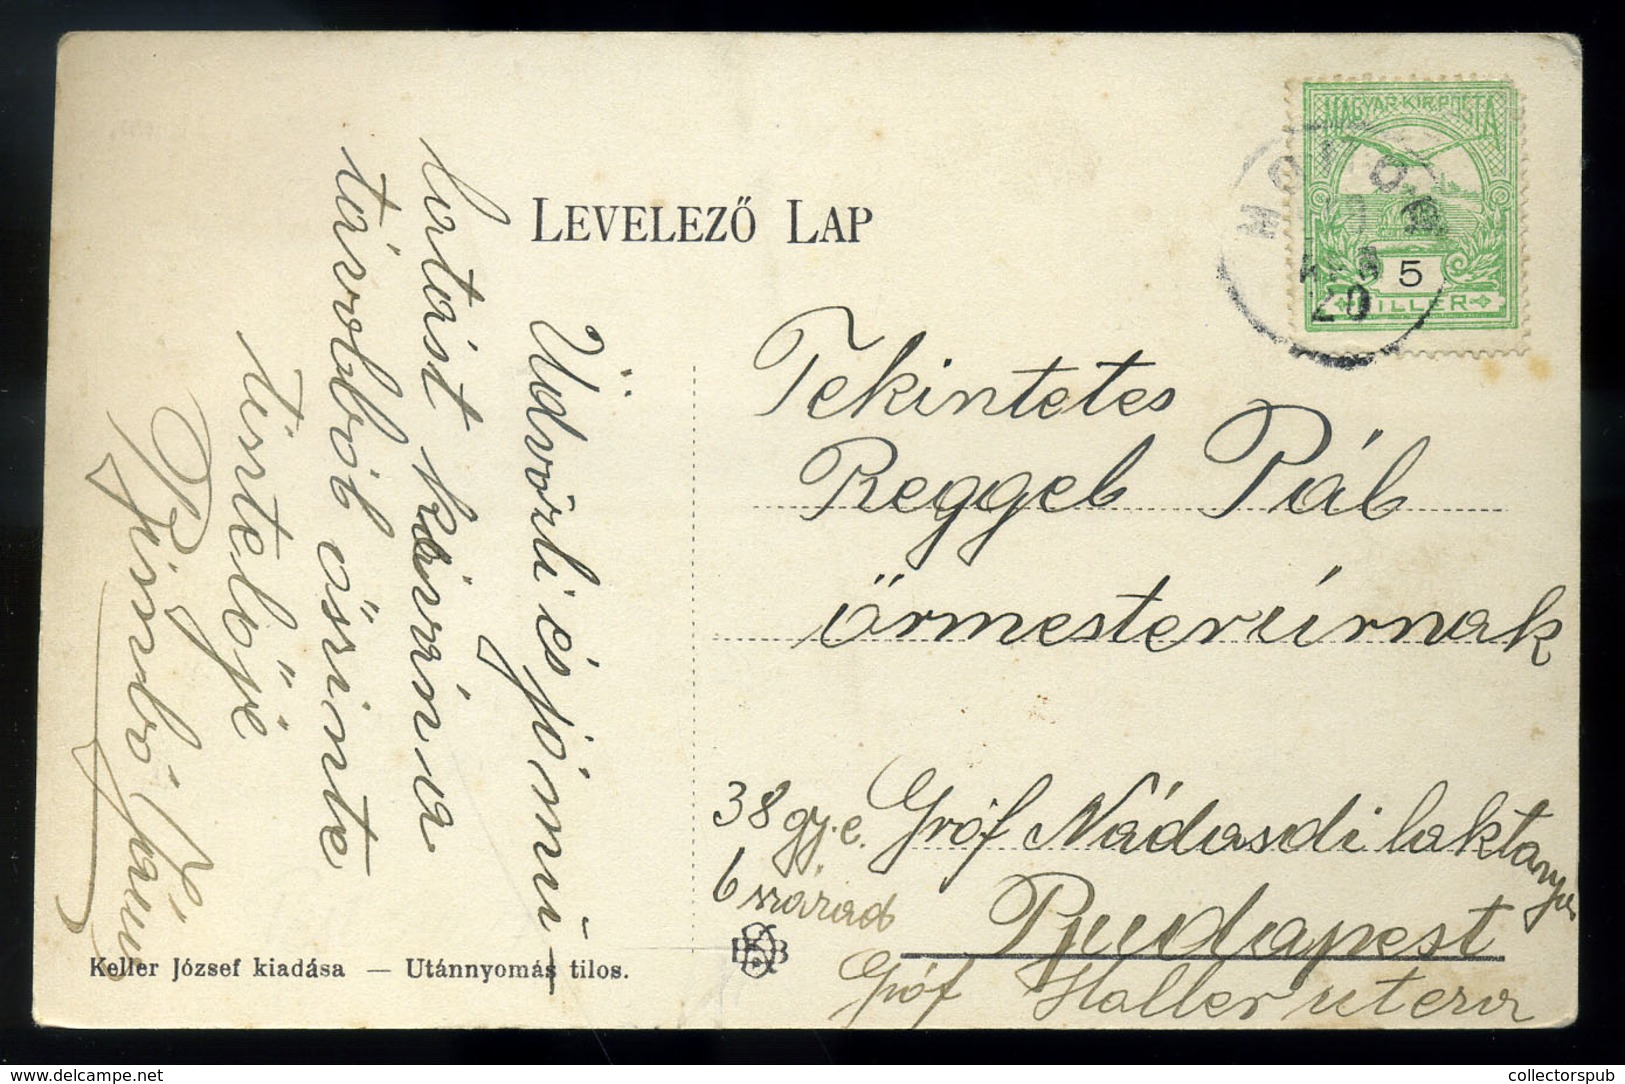 LEVELEZŐ LAP
MAGYAR·KIR·POSTA
5
FILLÉR
Üdvözli és jó mú-
latást kivánva
távolból őszinte
tisztelője
János
Tekintetes
Reggel Pál
őrmester úrnak
38 gy. e. Gróf Nádasdi laktanya
6 század
Budapest
Gróf Haller utcza
Keller József kiadása — Utánnyomás tilos.
collectorspub.com